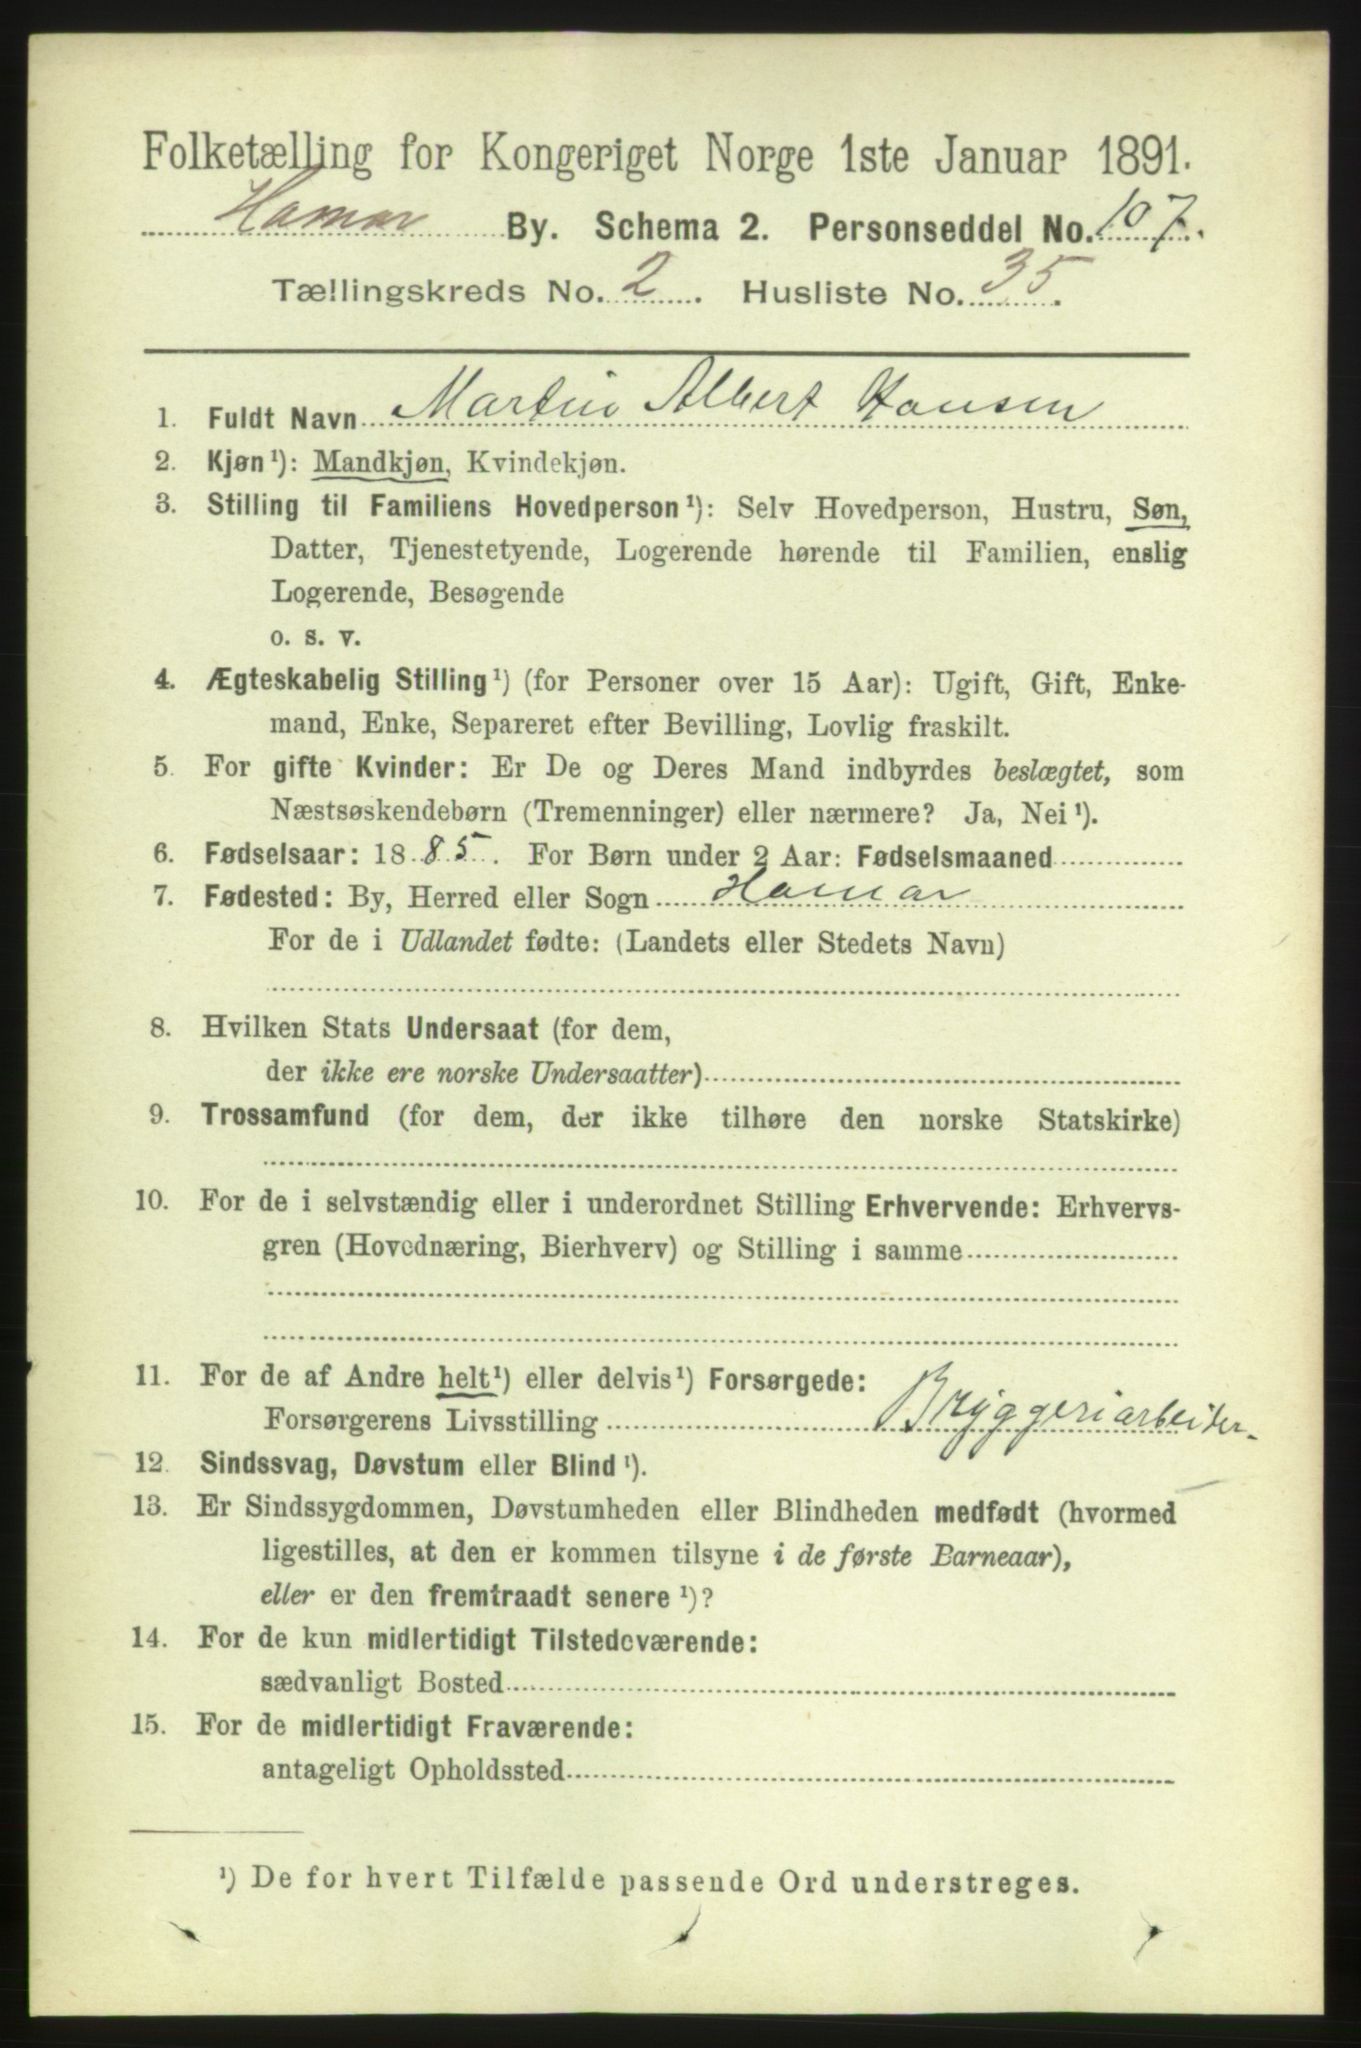 Folketælling for Kongeriget Norge 1ste Januar 1891.
Hamar By. Schema 2. Personseddel No. 107.
Tællingskreds No. 2. Husliste No. 35.
1. Fuldt Navn Martin Albert Hansen
2. Kjøn¹): Mandkjøn, Kvindekjøn.
3. Stilling til Familiens Hovedperson¹): Selv Hovedperson, Hustru, Søn,
Datter, Tjenestetyende, Logerende hørende til Familien, enslig
Logerende, Besøgende
o. s. v.
4. Ægteskabelig Stilling¹) (for Personer over 15 Aar): Ugift, Gift, Enke-
mand, Enke, Separeret efter Bevilling, Lovlig fraskilt.
5. For gifte Kvinder: Er De og Deres Mand indbyrdes beslægtet, som
Næstsøskendebørn (Tremenninger) eller nærmere? Ja, Nei¹).
6. Fødselsaar: 1885. For Børn under 2 Aar: Fødselsmaaned
7. Fødested: By, Herred eller Sogn Hamar
For de i Udlandet fødte: (Landets eller Stedets Navn)
8. Hvilken Stats Undersaat (for dem,
der ikke ere norske Undersaatter)
9. Trossamfund (for dem, der ikke tilhøre den norske Statskirke)
10. For de i selvstændig eller i underordnet Stilling Erhvervende: Erhvervs-
gren (Hovednæring, Bierhverv) og Stilling i samme
11. For de af Andre helt¹) eller delvis¹) Forsørgede:
Forsørgerens Livsstilling Bryggeriarbeider.
12. Sindssvag, Døvstum eller Blind¹).
13. Er Sindssygdommen, Døvstumheden eller Blindheden medfødt (hvormed
ligestilles, at den er kommen tilsyne i de første Barneaar),
eller er den fremtraadt senere¹)?
14. For de kun midlertidigt Tilstedeværende:
sædvanligt Bosted
15. For de midlertidigt Fraværende:
antageligt Opholdssted
¹) De for hvert Tilfælde passende Ord understreges.